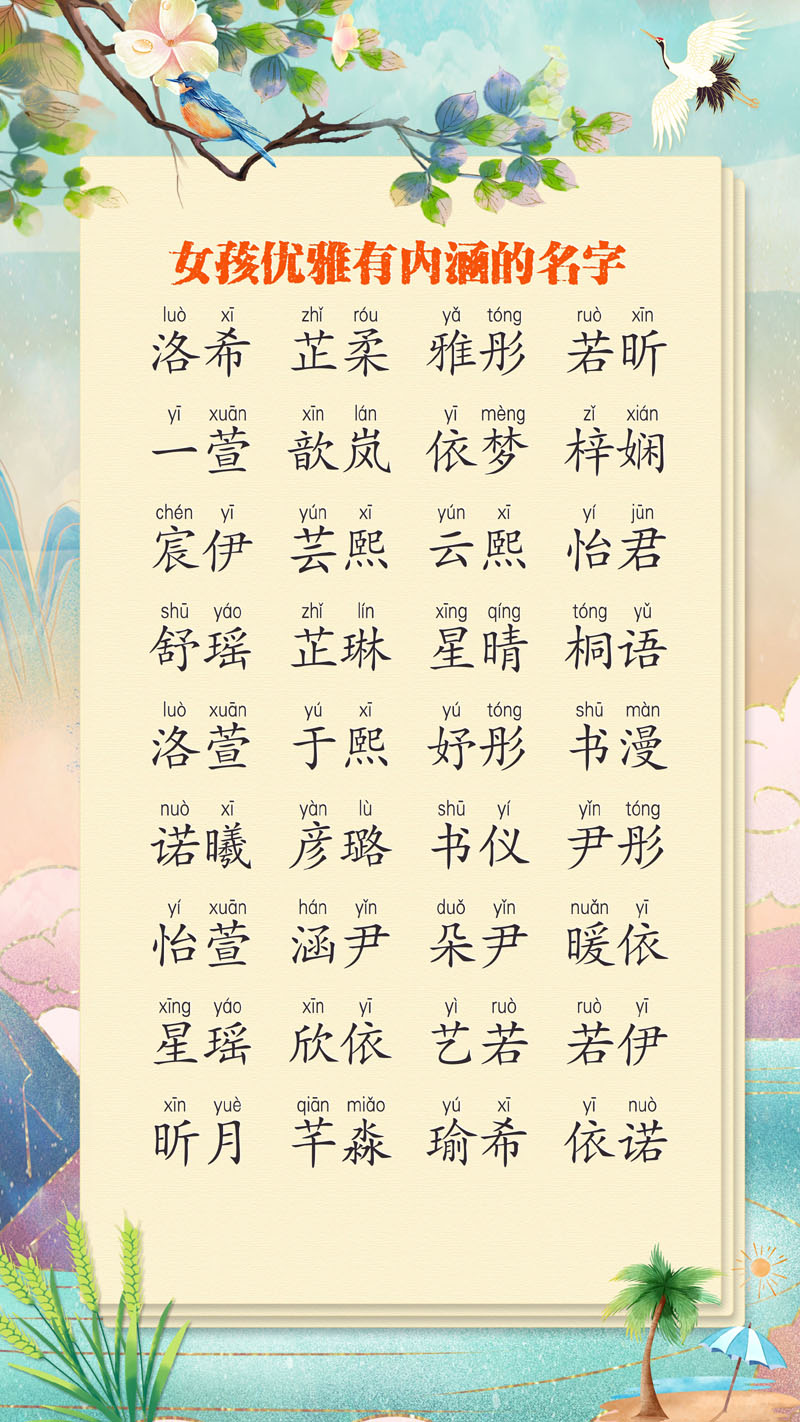 女孩优雅有内涵的名字
luò xī zhǐ róu yǎ tóng ruò xīn
洛希 芷柔 雅彤 若昕
yī xuān xīn lán yī mèng zǐ xián
一萱 歆岚 依梦 梓娴
chén yī yún xī yún xī yí jūn
宸伊 芸熙 云熙 怡君
shū yáo zhǐ lín xīng qíng tóng yǔ
舒瑶 芷琳 星晴 桐语
luò xuān yú xī yú tóng shū màn
洛萱 于熙 妤彤 书漫
nuò xī yàn lù shū yí yǐn tóng
诺曦 彦璐 书仪 尹彤
yí xuān hán yǐn duǒ yǐn nuǎn yī
怡萱 涵尹 朵尹 暖依
xīng yáo xīn yī yì ruò ruò yī
星瑶 欣依 艺若 若伊
xīn yuè qiān miǎo yú xī yī nuò
昕月 芊淼 瑜希 依诺